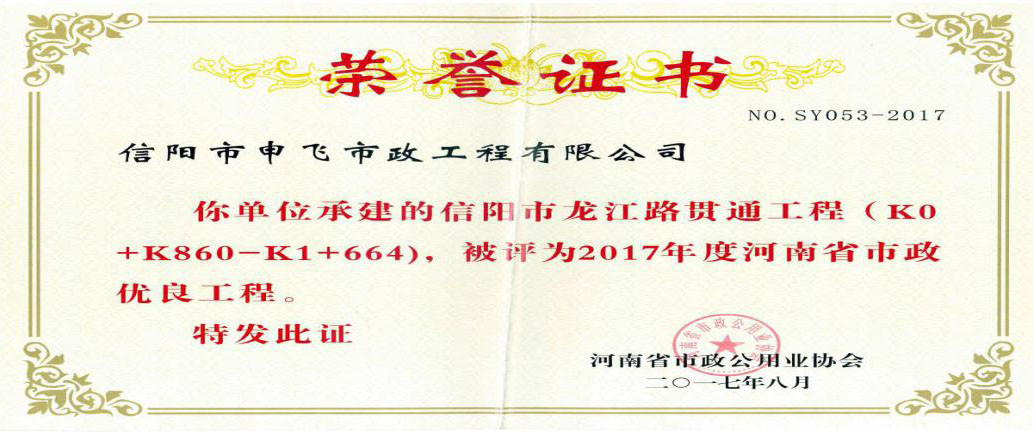 荣誉证书
NO. SY053-2017
信阳市申飞市政工程有限公司
你单位承建的信阳市龙江路贯通工程（K0
+K860-K1+664)，被评为2017年度河南省市政
优良工程。
特发此证
河南省市政公用业协会
河南省市政公用业协会
二〇一七年八月